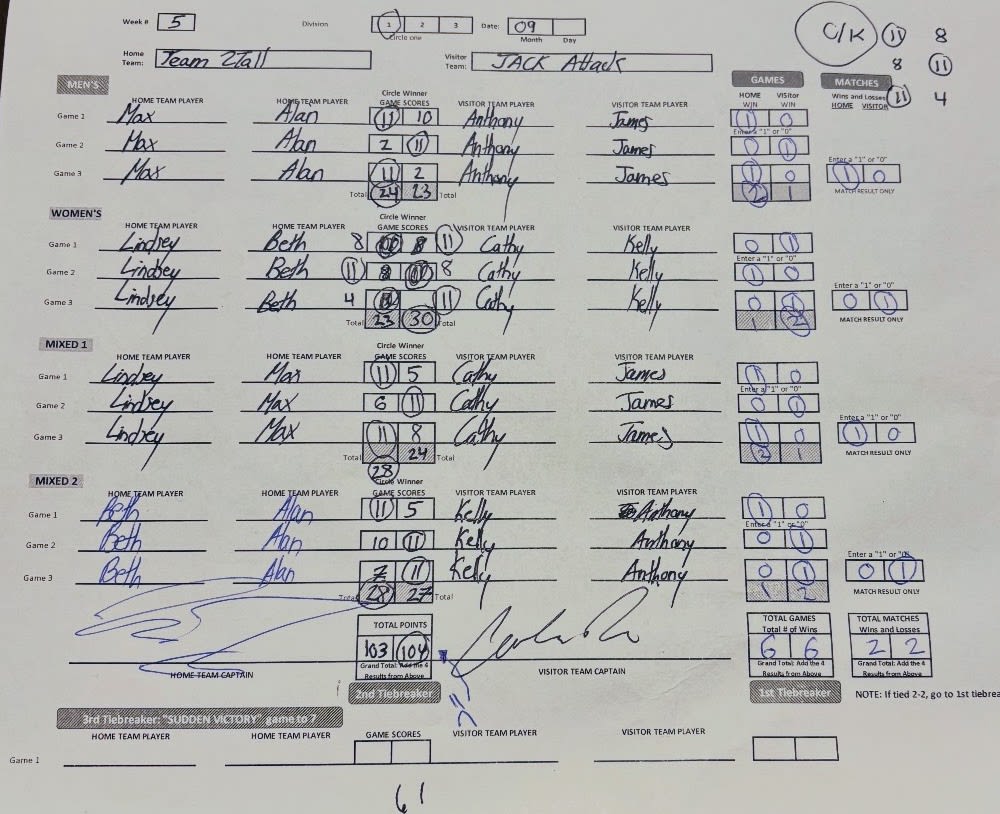 Week # 5 Division 1 2 3 Date: 09
Circle one Month Day
O/K 11 8
8 11
11 4
Home Team: Team 2Tall Visitor Team: JACK Attack
MEN'S GAMES MATCHES
HOME TEAM PLAYER HOME TEAM PLAYER Circle Winner GAME SCORES VISITOR TEAM PLAYER VISITOR TEAM PLAYER HOME WIN Visitor WIN Wins and Losses HOME VISITOR
Game 1 Max Alan 11 10 Anthony James 1 0
Enter a "1" or "0"
Game 2 Max Alan 2 11 Anthony James 0 1
Enter a "1" or "0"
Game 3 Max Alan 11 2 Anthony James 1 0 1 0
Total 24 23 2 1 MATCH RESULT ONLY
WOMEN'S Circle Winner
HOME TEAM PLAYER HOME TEAM PLAYER GAME SCORES VISITOR TEAM PLAYER VISITOR TEAM PLAYER
Game 1 Lindsey Beth 8 11 8 11 Cathy Kelly 0 1
Enter a "1" or "0"
Game 2 Lindsey Beth 11 8 11 8 Cathy Kelly 1 0
Enter a "1" or "0"
Game 3 Lindsey Beth 4 11 Cathy Kelly 0 1 0 1
Total 23 30 Total 1 2 MATCH RESULT ONLY
MIXED 1 Circle Winner
HOME TEAM PLAYER HOME TEAM PLAYER GAME SCORES VISITOR TEAM PLAYER VISITOR TEAM PLAYER
Game 1 Lindsey Max 11 5 Cathy James 1 0
Enter a "1" or "0"
Game 2 Lindsey Max 6 11 Cathy James 0 1
Enter a "1" or "0"
Game 3 Lindsey Max 11 8 Cathy James 1 0 1 0
Total 28 24 Total 2 1 MATCH RESULT ONLY
MIXED 2 Circle Winner
HOME TEAM PLAYER HOME TEAM PLAYER GAME SCORES VISITOR TEAM PLAYER VISITOR TEAM PLAYER
Game 1 Beth Alan 11 5 Kelly Anthony 1 0
Enter a "1" or "0"
Game 2 Beth Alan 10 11 Kelly Anthony 0 1
Enter a "1" or "0"
Game 3 Beth Alan 7 11 Kelly Anthony 0 1 0 1
Total 28 27 Total 1 2 MATCH RESULT ONLY
TOTAL POINTS TOTAL GAMES TOTAL MATCHES
Total # of Wins Wins and Losses
103 104 6 6 2 2
HOME TEAM CAPTAIN Grand Total: Add the 4 Results from Above VISITOR TEAM CAPTAIN Grand Total: Add the 4 Results from Above Grand Total: Add the 4 Results from Above
2nd Tiebreaker 1st Tiebreaker NOTE: If tied 2-2, go to 1st tiebrea
3rd Tiebreaker: "SUDDEN VICTORY" game to 7
HOME TEAM PLAYER HOME TEAM PLAYER GAME SCORES VISITOR TEAM PLAYER VISITOR TEAM PLAYER
Game 1
61